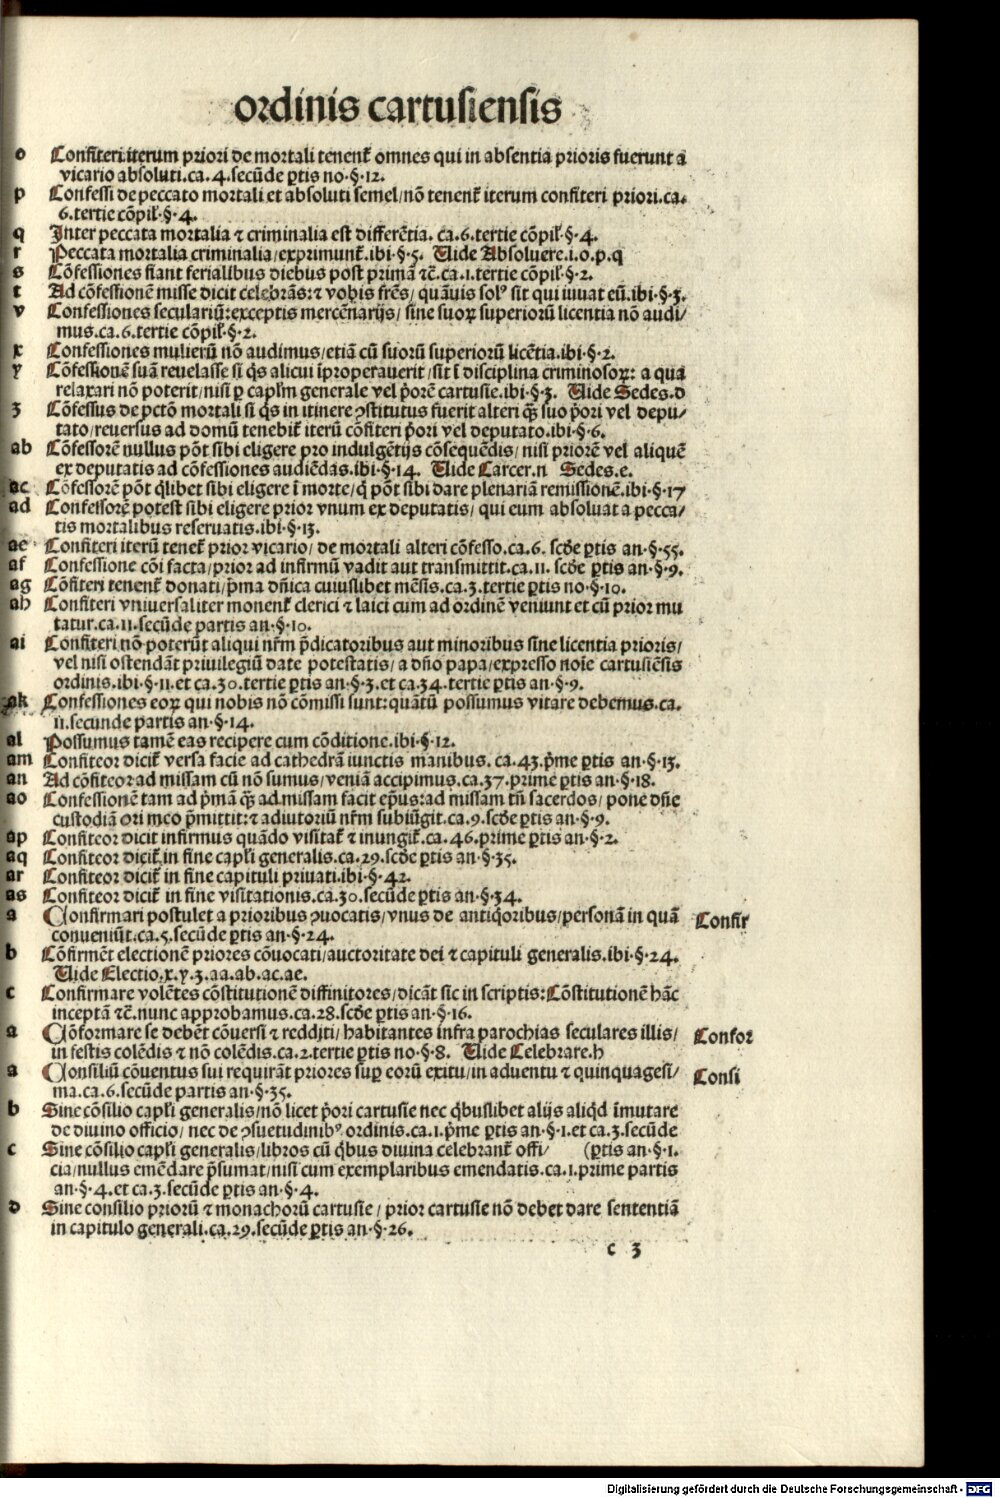 ordinis cartusiensis
o Confiteri iterum priori de mortali tenent᷑ omnes qui in absentia prioris fuerunt a
vicario absoluti.ca.4.secūde ꝑtis no.§.12.
p Confessi de peccato mortali et absoluti semel/nō tenent᷑ iterum confiteri priori.ca.
6.tertie cōpil̄.§.4.
q Inter peccata mortalia ⁊ criminalia est differētia. ca.6.tertie cōpil̄.§.4.
r Peccata mortalia criminalia/exprimunt᷑.ibi.§.5. Uide Absoluere.i.o.p.q
s Cōfessiones fiant ferialibus diebus post primā ⁊c̄.ca.1.tertie cōpil̄.§.2.
t Ad cōfessionē misse dicit celebrās:⁊ vobis frēs/ quāuis solꝰ sit qui iuuat eū.ibi.§.3.
v Confessiones seculariū:exceptis mercēnarijs/ sine suoꝝ superiorū licentia nō audi/
mus.ca.6.tertie cōpil̄.§.2.
x Confessiones mulierū nō audimus/etiā cū suorū superiorū licētia.ibi.§.2.
y Cōfessionē suā reuelasse si q̄s alicui īproperauerit/sit ī disciplina criminosoꝝ: a qua
relaxari nō poterit/nisi ꝑ capl̄m generale vel p̄orē cartusie.ibi.§.3. Uide Sedes.d
ʒ Cōfessus de pctō mortali si q̄s in itinere ꝯstitutus fuerit alteri q̄ȝ suo p̄ori vel depu/
tato/reuersus ad domū tenebit᷑ iterū cōfiteri p̄ori vel deputato.ibi.§.6.
ab Cōfessorē nullus pōt sibi eligere pro indulgētijs cōsequēdis/ nisi priorē vel aliquē
ex deputatis ad cōfessiones audiēdas.ibi.§.14. Uide Carcer.n Sedes.e.
ac Cōfessorē pōt q̄libet sibi eligere ī morte/q̄ pōt sibi dare plenariā remissionē.ibi.§.17
ad Confessorē potest sibi eligere prior vnum ex deputatis/ qui eum absoluat a pecca/
tis mortalibus reseruatis.ibi.§.13.
ae Confiteri iterū tenet᷑ prior vicario/ de mortali alteri cōfesso.ca.6. scd̄e ꝑtis an.§.55.
af Confessione cōi facta/prior ad infirmū vadit aut transmittit.ca.11. scd̄e ꝑtis an.§.9.
ag Cōfiteri tenent᷑ donati/p̄ma dn̄ica cuiuslibet mēsis.ca.3.tertie ꝑtis no.§.10.
ah Confiteri vniuersaliter monent᷑ clerici ⁊ laici cum ad ordinē veniunt et cū prior mu
tatur.ca.11.secūde partis an.§.10.
ai Confiteri nō poterūt aliqui nr̄m p̄dicatoribus aut minoribus sine licentia prioris/
vel nisi ostendāt priuilegiū date potestatis/ a dn̄o papa/expresso noīe cartusiēsis
ordinis.ibi.§.11.et ca.30.tertie ꝑtis an.§.3.et ca.34.tertie ꝑtis an.§.9.
ak Confessiones eoꝝ qui nobis nō cōmissi sunt:quātū possumus vitare debemus.ca.
11.secunde partis an.§.14.
al Possumus tamē eas recipere cum cōditione.ibi.§.12.
am Confiteor dicit᷑ versa facie ad cathedrā iunctis manibus. ca.43.p̄me ꝑtis an.§.13.
an Ad cōfiteor ad missam cū nō sumus/veniā accipimus.ca.37.prime ꝑtis an.§.18.
ao Confessionē tam ad p̄mā q̄ȝ ad missam facit ep̄us:ad missam tn̄ sacerdos/ pone dn̄e
custodiā ori meo p̄mittit:⁊ adiutoriū nr̄m subiūgit.ca.9.scd̄e ꝑtis an.§.9.
ap Confiteor dicit infirmus quādo visitat᷑ ⁊ inungit᷑.ca.46.prime ꝑtis an.§.2.
aq Confiteor dicit᷑ in fine capl̄i generalis.ca.29.scd̄e ꝑtis an.§.35.
ar Confiteor dicit᷑ in fine capituli priuati.ibi.§.42.
as Confiteor dicit᷑ in fine visitationis.ca.30.secūde ꝑtis an.§.34.
a Confirmari postulet a prioribus ꝯuocatis/vnus de antiq̄oribus/personā in quā Confir
conueniūt.ca.5.secūde ꝑtis an.§.24.
b Cōfirmēt electionē priores cōuocati/auctoritate dei ⁊ capituli generalis.ibi.§.24.
Uide Electio.x.y.ʒ.aa.ab.ac.ae.
c Confirmare volētes cōstitutionē diffinitores/dicāt sic in scriptis:Cōstitutionē hāc
inceptā ⁊c̄.nunc approbamus.ca.28.scd̄e ꝑtis an.§.16.
a Cōformare se debēt cōuersi ⁊ redditi/ habitantes infra parochias seculares illis/ Confor
in festis colēdis ⁊ nō colēdis.ca.2.tertie ꝑtis no.§.8. Uide Celebrare.h
a Consiliū cōuentus sui requirāt priores sup̄ eorū exitu/in aduentu ⁊ quinquagesi/ Consi
ma.ca.6.secūde partis an.§.35.
b Sine cōsilio capl̄i generalis/nō licet p̄ori cartusie nec q̄buslibet alijs aliq̄d īmutare
de diuino officio/ nec de ꝯsuetudinibꝰ ordinis.ca.1.p̄me ꝑtis an.§.1.et ca.3.secūde
c Sine cōsilio capl̄i generalis/libros cū q̄bus diuina celebrant᷑ offi/ (ꝑtis an.§.1.
cia/nullus emēdare p̄sumat/nisi cum exemplaribus emendatis.ca.1.prime partis
an.§.4.et ca.3.secūde ꝑtis an.§.4.
d Sine consilio priorū ⁊ monachorū cartusie/ prior cartusie nō debet dare sententiā
in capitulo generali.ca.29.secūde ꝑtis an.§.26.
c 3
Digitalisierung gefördert durch die Deutsche Forschungsgemeinschaft - DFG